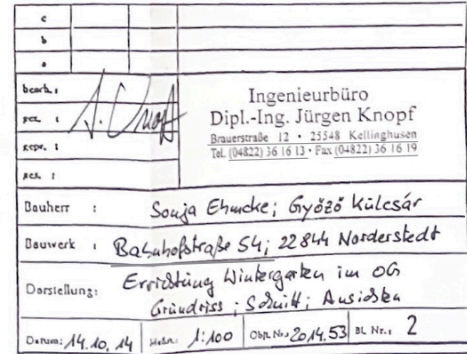 c
b
a
bearb. :
gez. :
gepr. :
ges. :
Ingenieurbüro
Dipl.-Ing. Jürgen Knopf
Brauerstraße 12 • 25548 Kellinghusen
Tel. (04822) 36 16 13 • Fax (04822) 36 16 19
Bauherr : Sonja Ehmcke; Győző Kulcsár
Bauwerk : Bahnhofstraße 54; 22844 Norderstedt
Darstellung: Errichtung Wintergarten im OG
Grundriss; Schnitt; Ansichten
Datum: 14.10.14 Maßst. 1:100 Obj. No. 2014.53 Bl. Nr.: 2